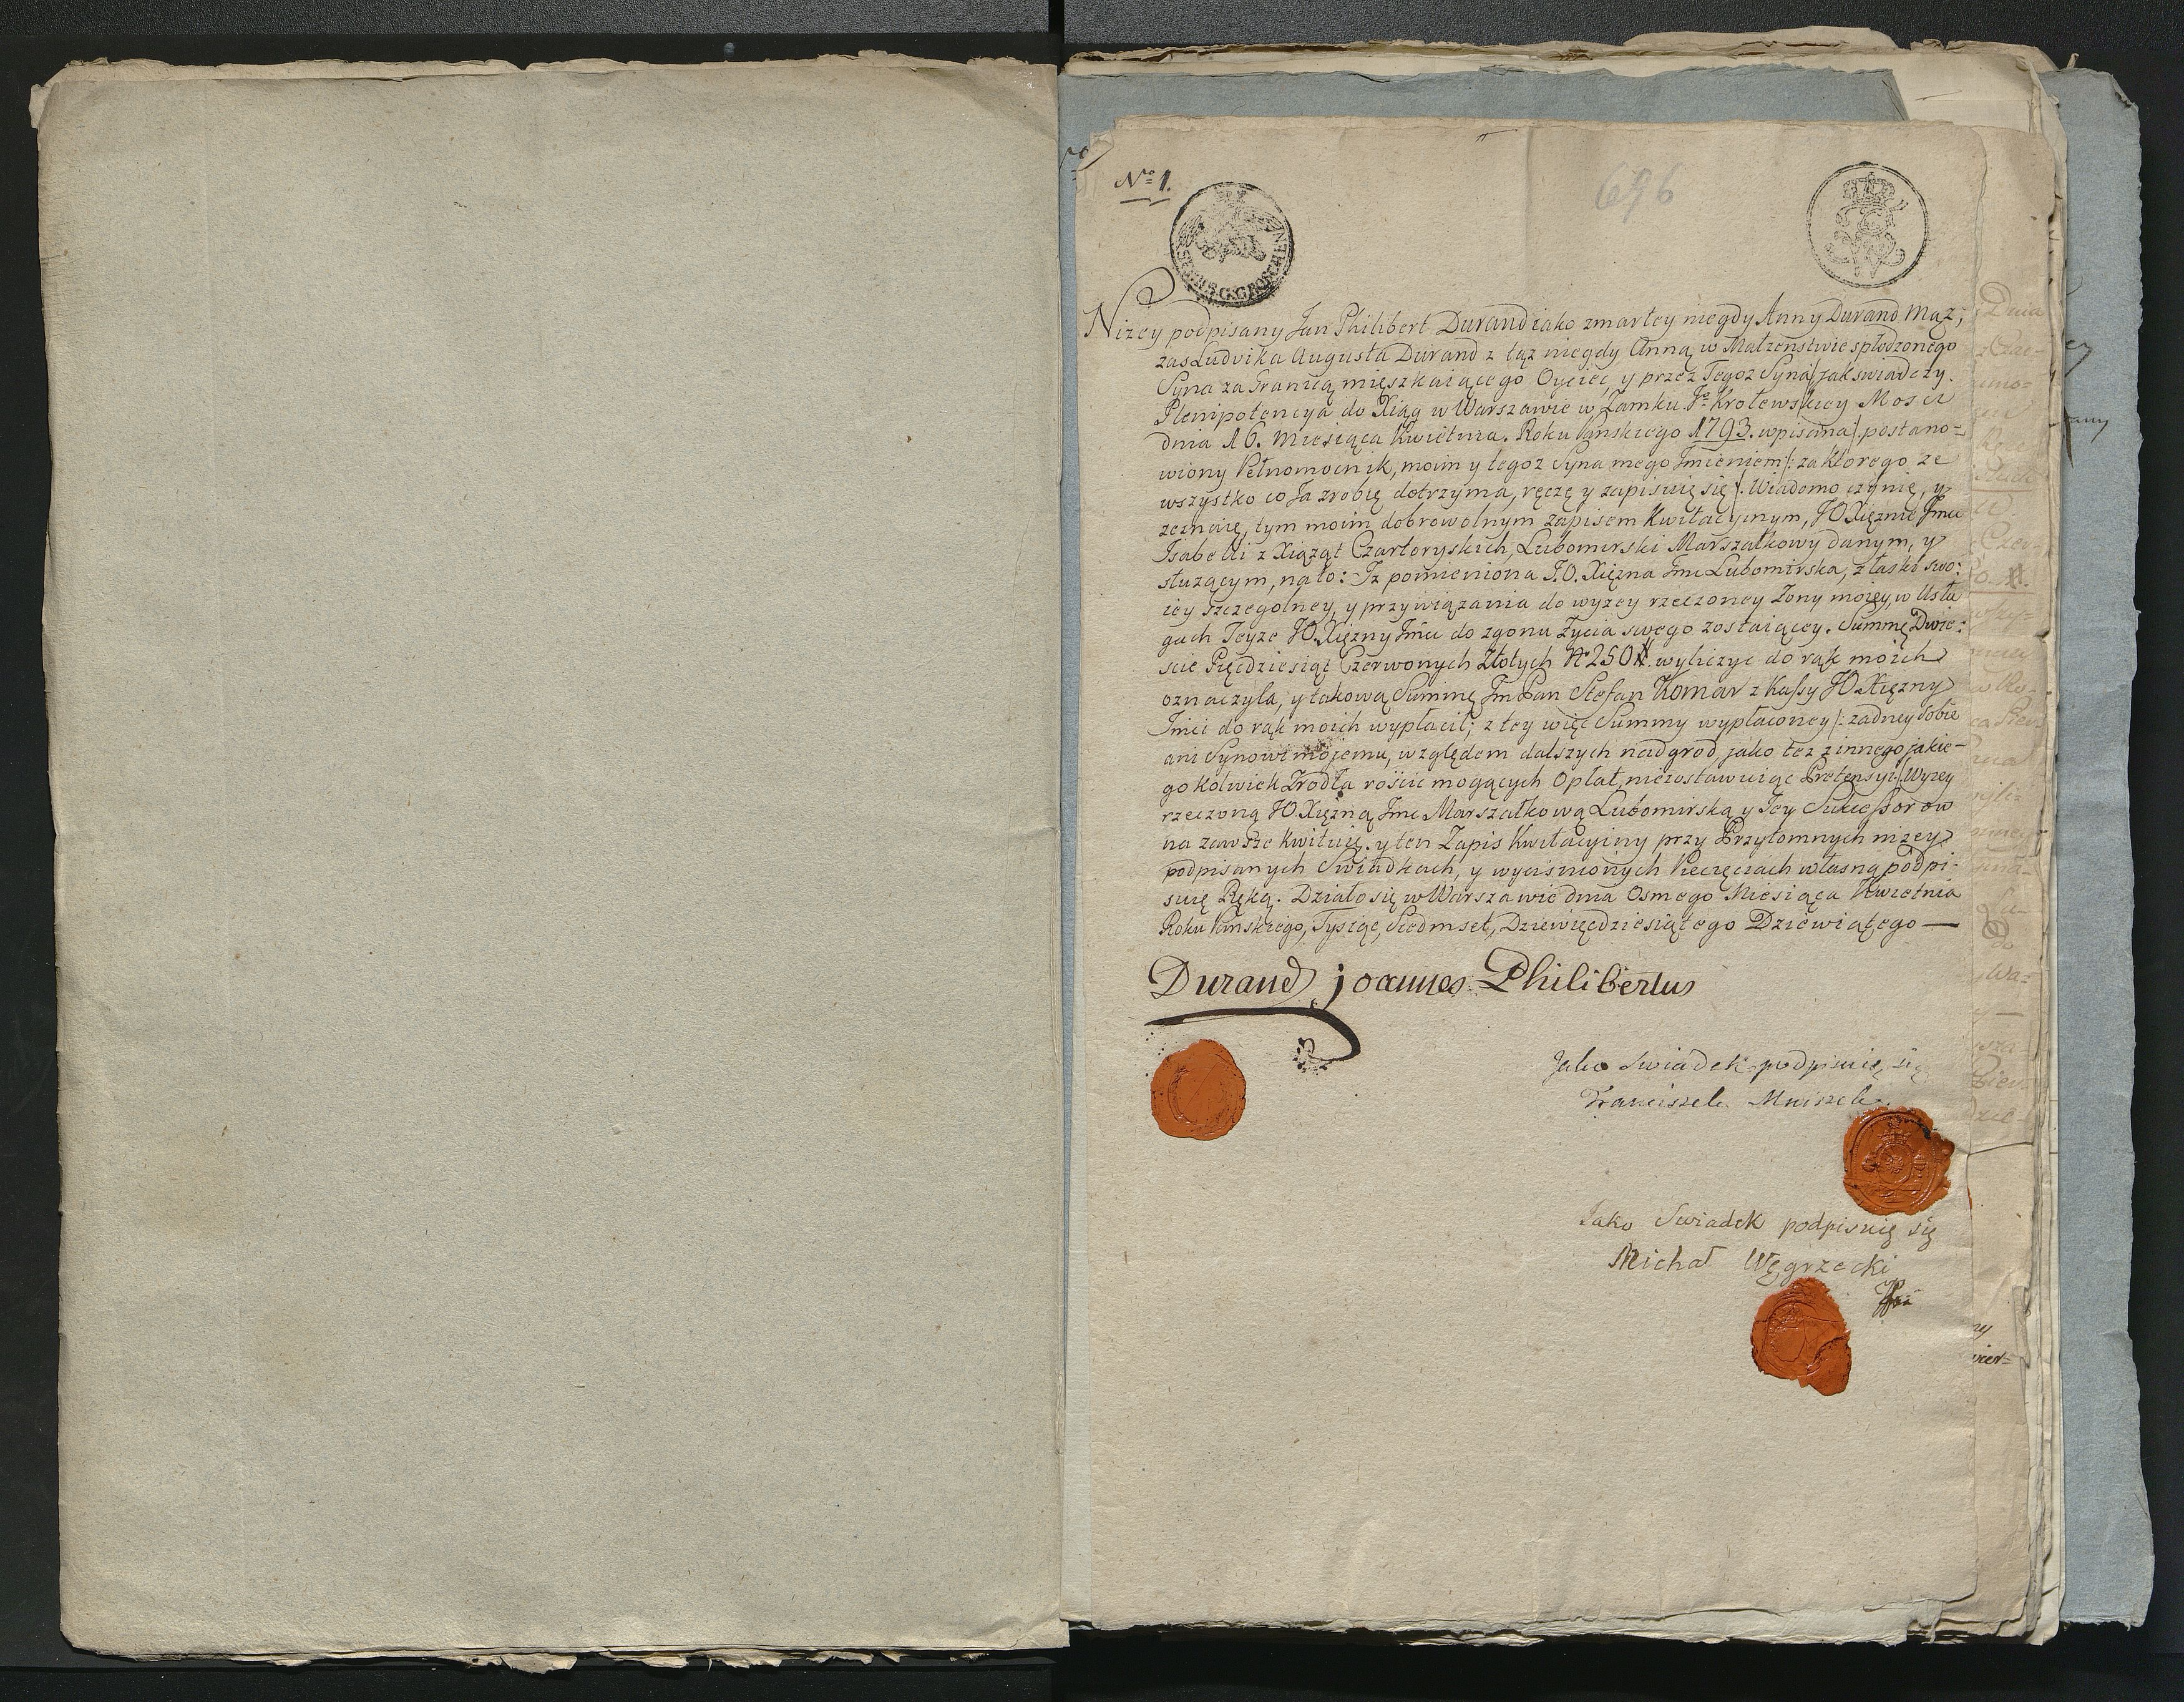 No 1.
696
SECHS G. GROSCHEN
Nizey podpisany Jan Philibert Durand iako zmarłey niegdy Anny Durand Mąż;
zas Ludvika Augusta Durand z tąż niegdy Anną w Małzenstwie spłodzonego
Syna za Granicą mięszkaiącego Oyciec, y przez Tegoz Syna /: jak swiadczy
Plenipotencya do Xiąg w Warszawie w Zamku Jo Krolewskiey Mosci
dnia 16. Miesiąca Kwietnia. Roku Panskiego 1793. wpisana /: postano=
wiony Pełnomocnik, moim y tegoz Syna mego Jmieniem /: za ktorego ze
wszystko co Ja zrobię dotrzyma, ręczę y zapisuię się /. Wiadomo czynię, y
zeznaię, tym moim dobrowolnym zapisem Kwitacyinym, JO Xięznie Jmci
Isabelli z Xiążąt Czartoryskich, Lubomirski Marszałkowy danym, y
służącym, na to: Iz pomieniona J.O. Xięzna Jmc Lubomirska, z łaski swo:
iey szczegolney, y przywiązania do wyzey rzeczoney Zony moięy, w Usłu
gach Teyze JO Xięzny Jmci do zgonu Zycia swęgo zostaiącey. Summę Dwie:
scie Pięcdziesiąt Czerwonych Złotych No 250 #. wyliczyc do rąk moich
oznaczyła, y takową Summę Jm Pan Stefan Komar z Kassy JO Xięzny
Jmci do rąk moich wypłacił; z tey więc Summy wypłaconey /: zadney sobie
ani Synowi mojemu, względem dalszych nadgrod, jako tez z innego jakie-
go kolwiek Zrodła roscic mogących Opłat, niezostawuiąc Pretensyi :/ Wyzey
rzeczoną JO Xięzną Jmc Marszałkową Lubomirską y Jey Sukcessorow
na zawsze kwituię. y ten Zapis Kwitacyiny przy Przytomnych nizey
podpisanych Swiadkach, y wycisnionych Pieczęciach własną podpi-
suię Ręką. Działo się w Warszawie dnia Osmego Miesiąca Kwietnia
Roku Panskiego, Tysiąc, Siedmset, Dziewięcdziesiątego Dziewiątego —
Durand joannes Philibertus
Jako swiadek podpisuię się
Franciszek Mniszek
Jako Swiadek podpisuię się
Michał Węgrzecki